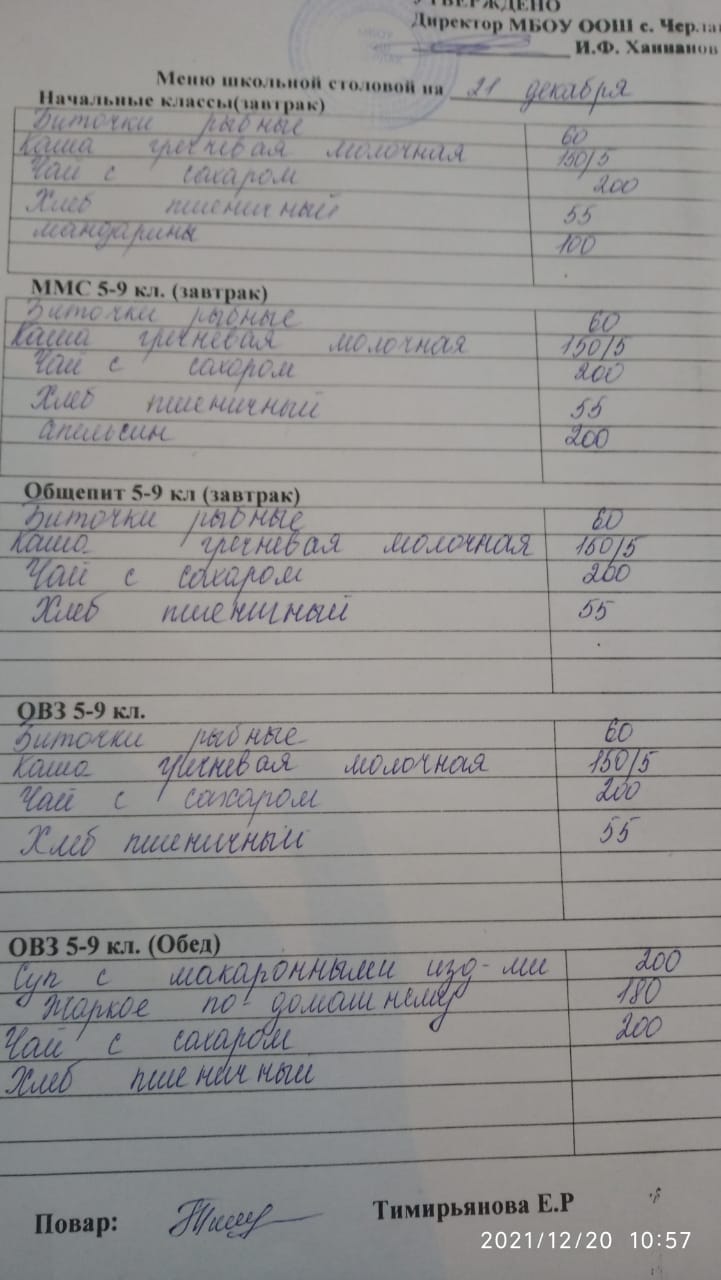 УТВЕРЖДЕНО
Директор МБОУ ООШ с. Черла
И.Ф. Ханнанов
МБОУ
Меню школьной столовой на 21 декабря
Начальные классы(завтрак)
Биточки рыбные 60
Каша гречневая молочная 150/5
Чай с сахаром 200
Хлеб пшеничный 55
мандарины 100
ММС 5-9 кл. (завтрак)
Биточки рыбные 60
Каша гречневая молочная 150/5
Чай с сахаром 200
Хлеб пшеничный 55
апельсин 200
Общепит 5-9 кл (завтрак)
Биточки рыбные 60
Каша гречневая молочная 150/5
Чай с сахаром 200
Хлеб пшеничный 55
ОВЗ 5-9 кл.
Биточки рыбные 60
Каша гречневая молочная 150/5
Чай с сахаром 200
Хлеб пшеничный 55
ОВЗ 5-9 кл. (Обед)
Суп с макаронными изд-ми 200
Жаркое по-домашнему 180
Чай с сахаром 200
Хлеб пшеничный
Повар: Тимирьянова Е.Р
2021/12/20 10:57